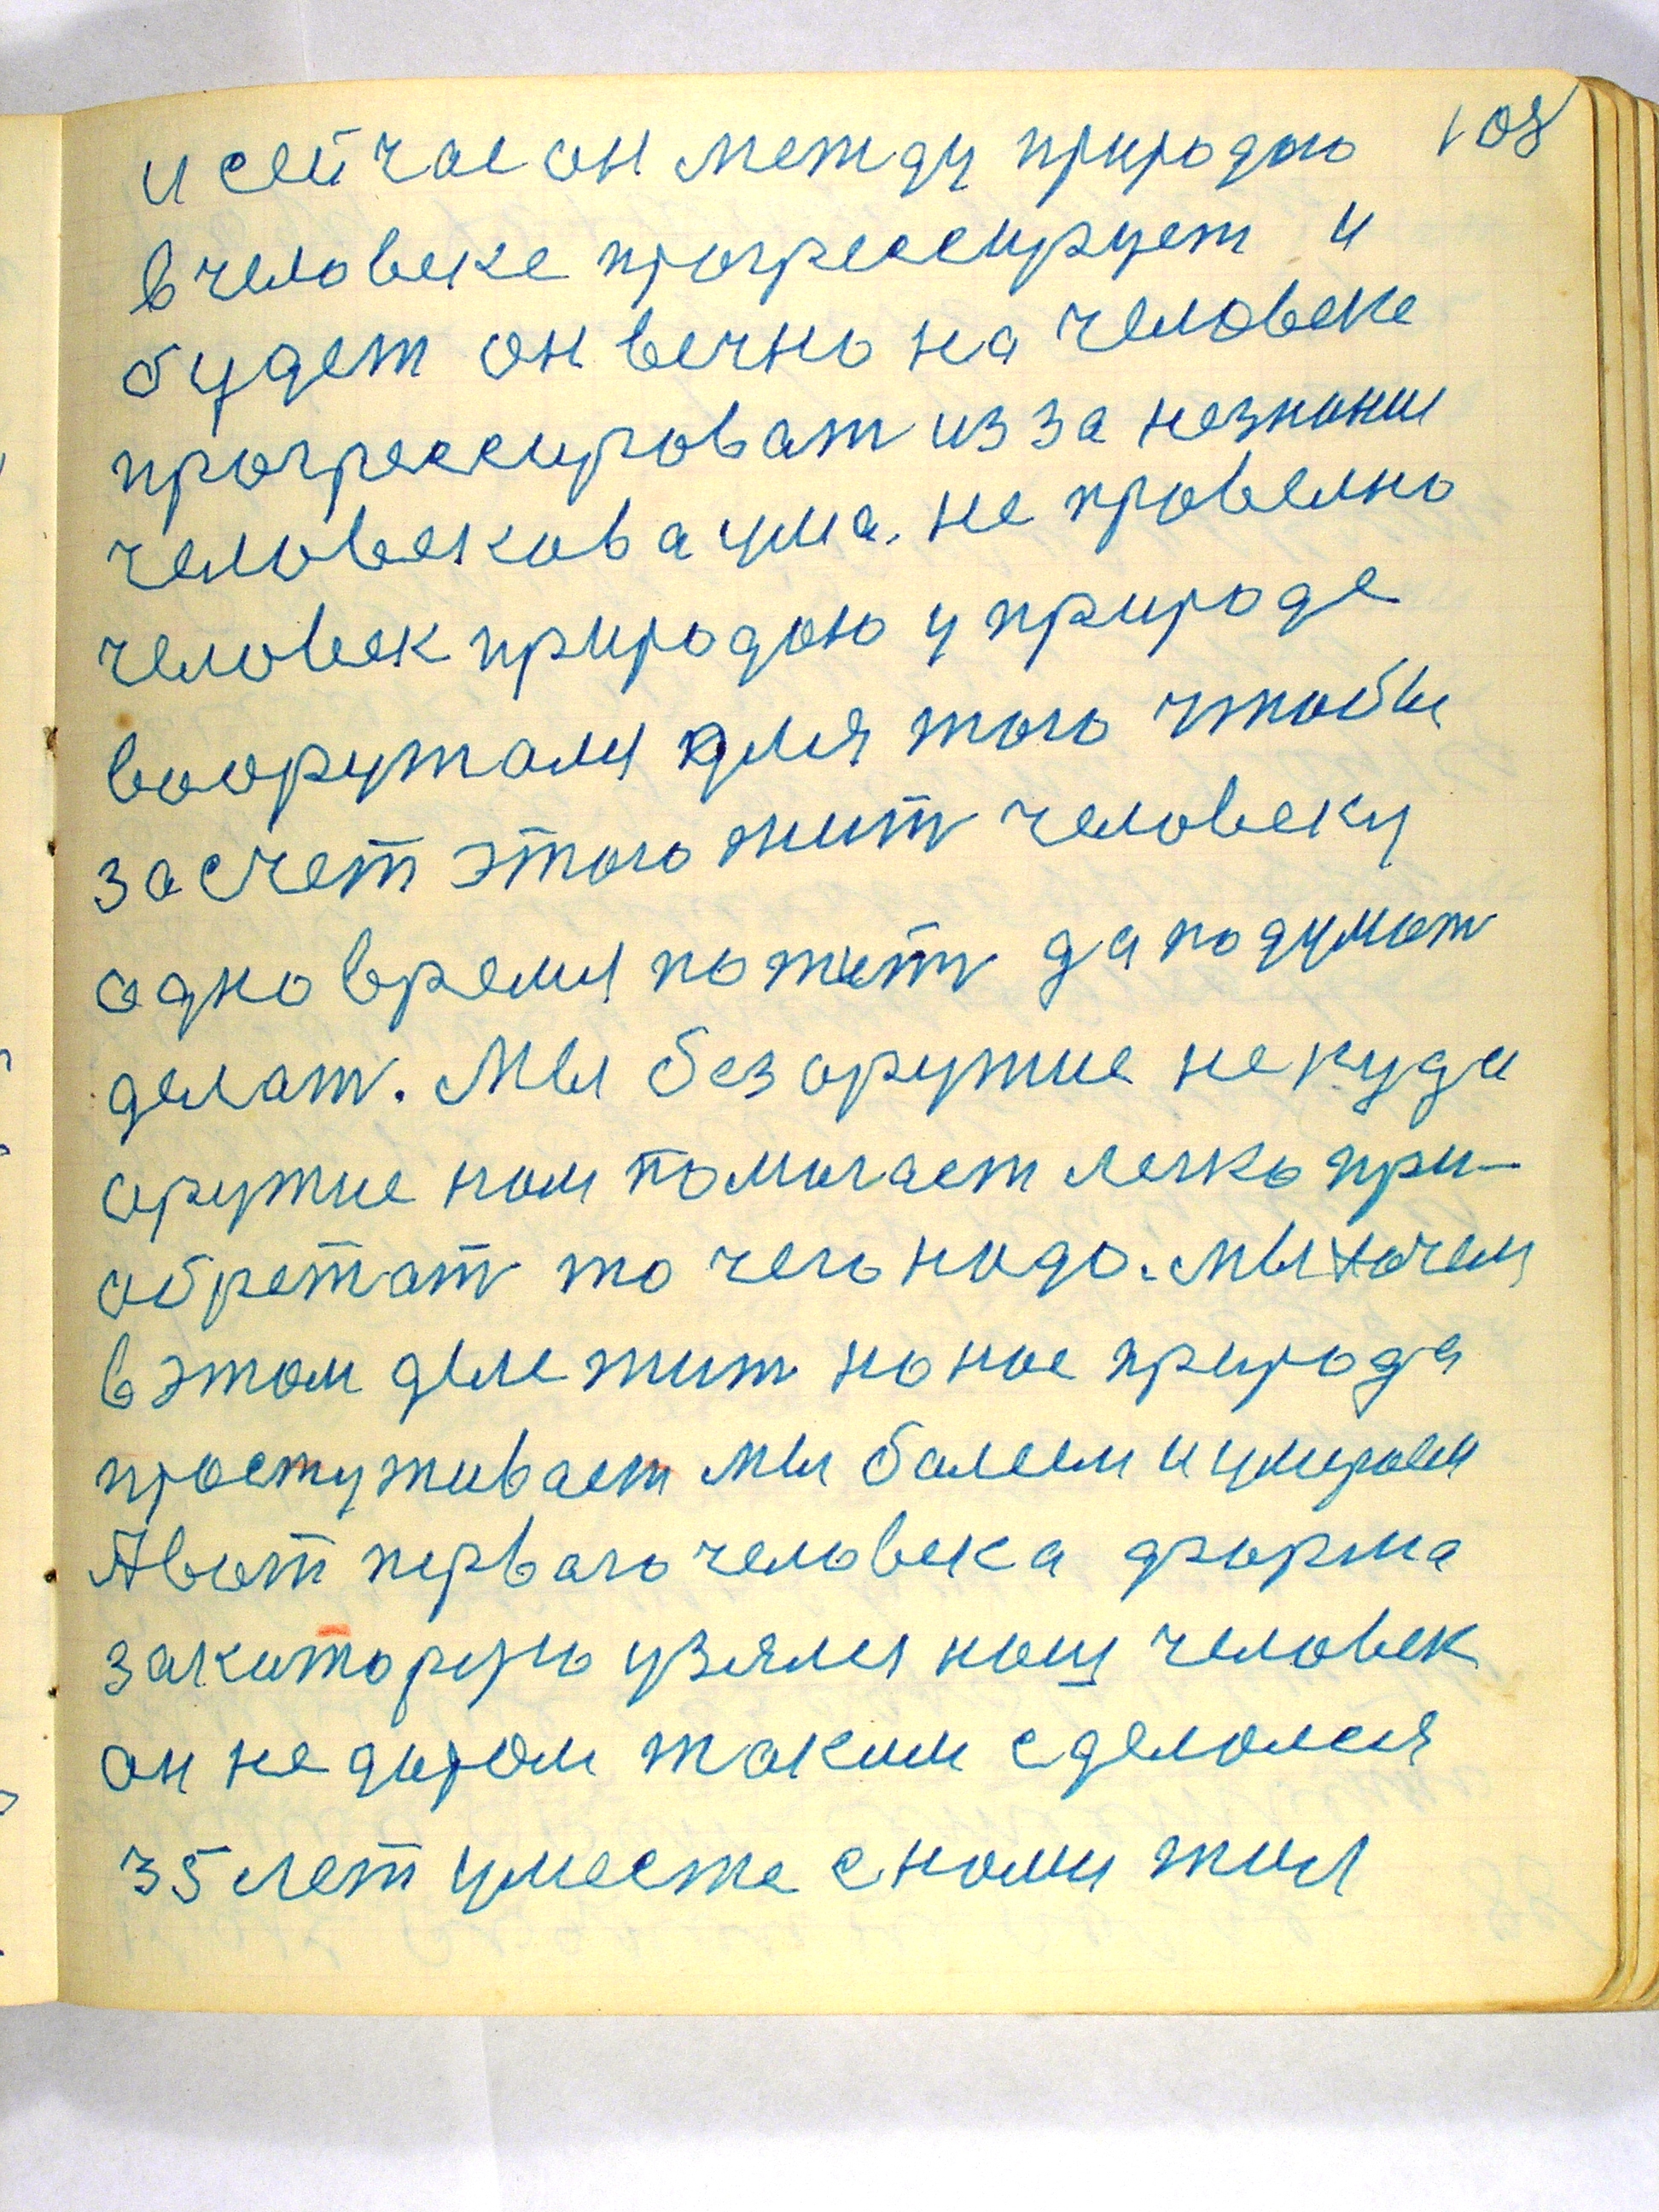 108
и сейчас он между природою
в человеке прогрессирует и
будет он вечно на человеке
прогрессироват из за незнании
человекова ума. не провелно
человек природою у природе
вооружался для того чтобы
за счет этого жит человеку
одно время пожит да подумат
делат. Мы без оружие не куда
оружие нам помогает легко при-
обретат то чего надо. Мы хочем
в этом деле жит но нас природа
простуживает мы болеем и умираем
А вот первого человека форма
за которую узялся наш человек
он не даром таким сделался
35 лет уместе с нами жил